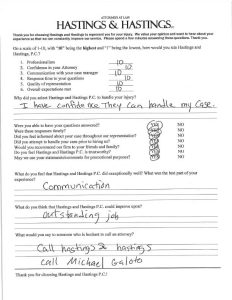 ATTORNEYS AT LAW
HASTINGS & HASTINGS
Thank you for choosing Hastings and Hastings to represent you for your injury. We value your opinion and want to hear about your
experience so that we can constantly improve our service. Please spend a few minutes answering these questions. Thank you.
On a scale of 1-10, with "10" being the highest and "1" being the lowest, how would you rate Hastings and
Hastings, P.C.?
1. Professionalism 10
2. Confidence in your Attorney 10
3. Communication with your case manager 10
4. Response time to your questions 10
5. Quality of representation 10
6. Overall expectations met 10
Why did you select Hastings and Hastings P.C. to handle your injury?
I have confidence They can handle my Case.
Were you able to have your questions answered? YES NO
Were these responses timely? YES NO
Did you feel informed about your case throughout our representation? YES NO
Did you attempt to handle your case prior to hiring us? YES NO
Would you recommend our firm to your friends and family? YES NO
Do you feel Hastings and Hastings P.C. is trustworthy? YES NO
May we use your statements/comments for promotional purposes? YES NO
What do you feel that Hastings and Hastings P.C. did exceptionally well? What was the best part of your
experience?
Communication
What do you think that Hastings and Hastings P.C. could improve upon?
outstanding job
What would you say to someone who is hesitant to call an attorney?
Call hastings & hastings
call Michael Galoto
Thank you for choosing Hastings and Hastings P.C.!